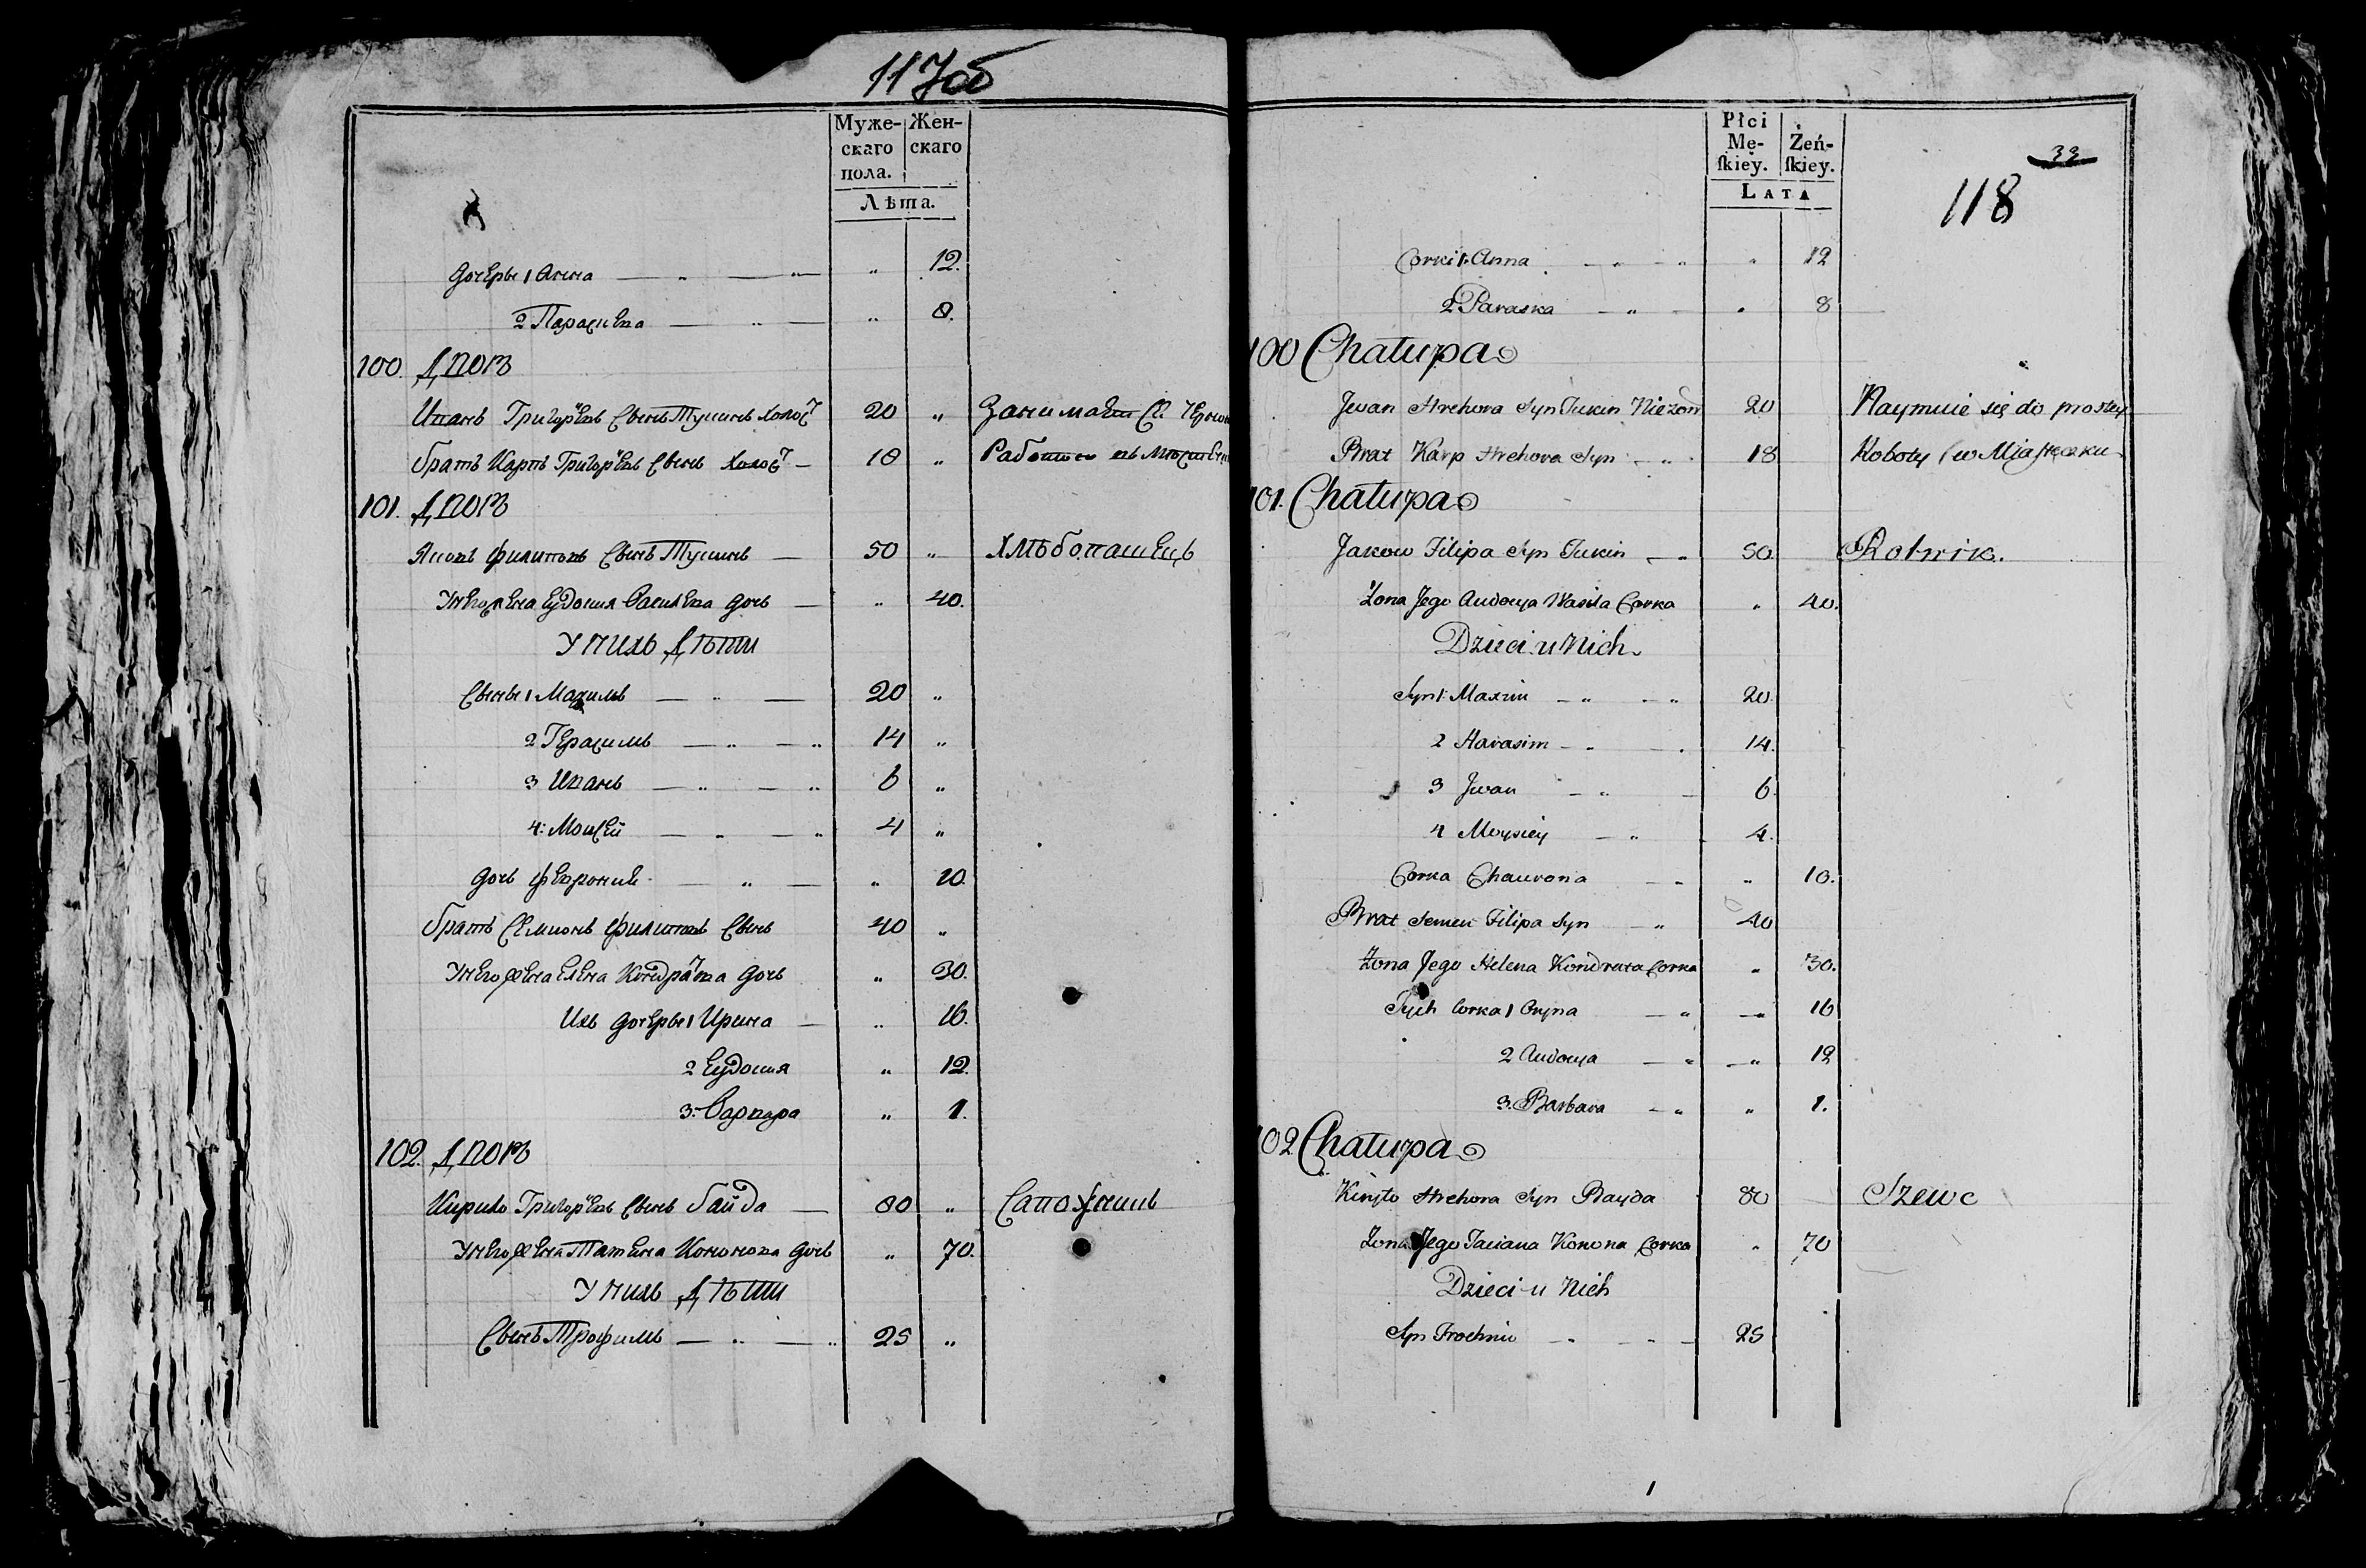 117об
Муже-
скаго
пола.
Жен-
скаго
Лѣта.
дочеры 1 Анна — „ — „ „ 12.
2 Парасчева — „ — „ 8.
100. Дворъ
Иванъ Григорьевъ Сынъ Тукинъ холос 20 „ Занимает Ся Черно
братъ Карпъ Григорьевъ Сынъ Холос — 18 „ Работою въ
101. Дворъ
Яковъ Филиповъ Сынъ Тукинъ — 50 „ Хлѣбопашецъ
У него жена Евдокия Василева дочь — „ 40.
У нихъ Дѣти
Сыны 1 Максимъ — „ — 20 „
2 Герасимъ — „ — „ 14 „
3 Иванъ — „ — „ 6 „
4: Моисей — „ — „ 4 „
дочь Феврония — „ — „ 10.
братъ Семионъ Филиповъ Сынъ 40 „
У него жена Елена Кондратова дочь „ 30.
Ихъ дочеры 1 Ирина — „ 16.
2 Евдокия „ 12.
3: Варвара „ 1.
102. Дворъ
Кирило Григорьевъ Сынъ Байда — 80 „ Сапожникъ
У него жена Татьяна Кононова дочь „ 70.
У нихъ Дѣти
Сынъ Трофимъ — „ — „ 25 „
Płci
Mę-
ſkiey.
Żeń-
ſkiey.
LATA
33
118
Corki 1. Anna — „ — „ „ 12
2 Paraska — „ — „ 8
100 Chałupa
Jwan Hrehora Syn Tukin Nieżon 20 Naymuie się do prostey
Brat Karp Hrehora Syn — „ 18 Roboty w Miasteczku
101. Chałupa
Jakow Filipa Syn Tukin — „ 50 Rolnik.
Żona Jego Audocya Wasila Corka „ 40.
Dzieci u Nich
Syn 1: Maxim — „ — „ 20.
2 Harasim — „ — 14.
3 Jwan — „ — 6.
4 Moysiey — „ 4.
Corka Chaurona — „ „ 10.
Brat Semen Filipa Syn — „ 40
Żona Jego Helena Kondrata Corka „ 30.
Tych Corka 1 Oryna — „ — „ 16
2 Audocya — „ — „ 12
3. Barbara — „ „ 1.
102 Chałupa
Kiryło Hrehora Syn Bayda 80 Szewc
Żona Jego Taciana Konona Corka „ 70
Dzieci u Nich
Syn Trochim — „ — „ — 25